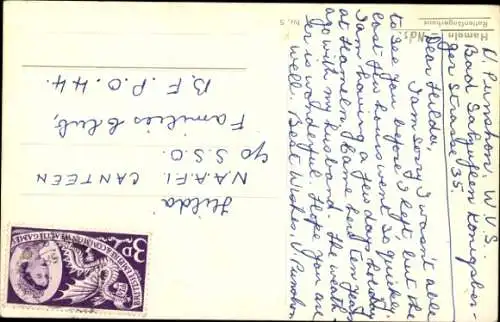 Hameln
Rattenfängerhaus
Nr. 5
V. Punshon. W.V.S.
Bad Salzuflen Königsber-
ger Strasse 35.
Dear Hilda,
I am sorry I wasn't able
to see you before I left, but the
last few hours went so quickly.
I am having a few days holiday
at Hameln, I came here ten years
ago with my husband. The weath-
er is wonderful. Hope you are
well. Best Wishes. V Punshon
Hilda
N.A.A.F.I. CANTEEN
c/o S.S.O.
Families Club,
B.F.P.O. 44.
3D